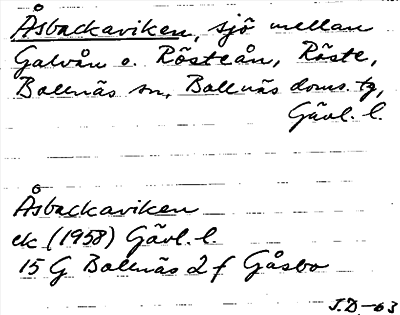 Åsbackaviken, sjö mellan
Galvån o. Rösteån, Röste,
Bollnäs sn, Bollnäs doms. tg,
Gävl. l.
Åsbackaviken
ek (1958) Gävl. l.
15 G Bollnäs 2 f Gåsbo
J.D-63